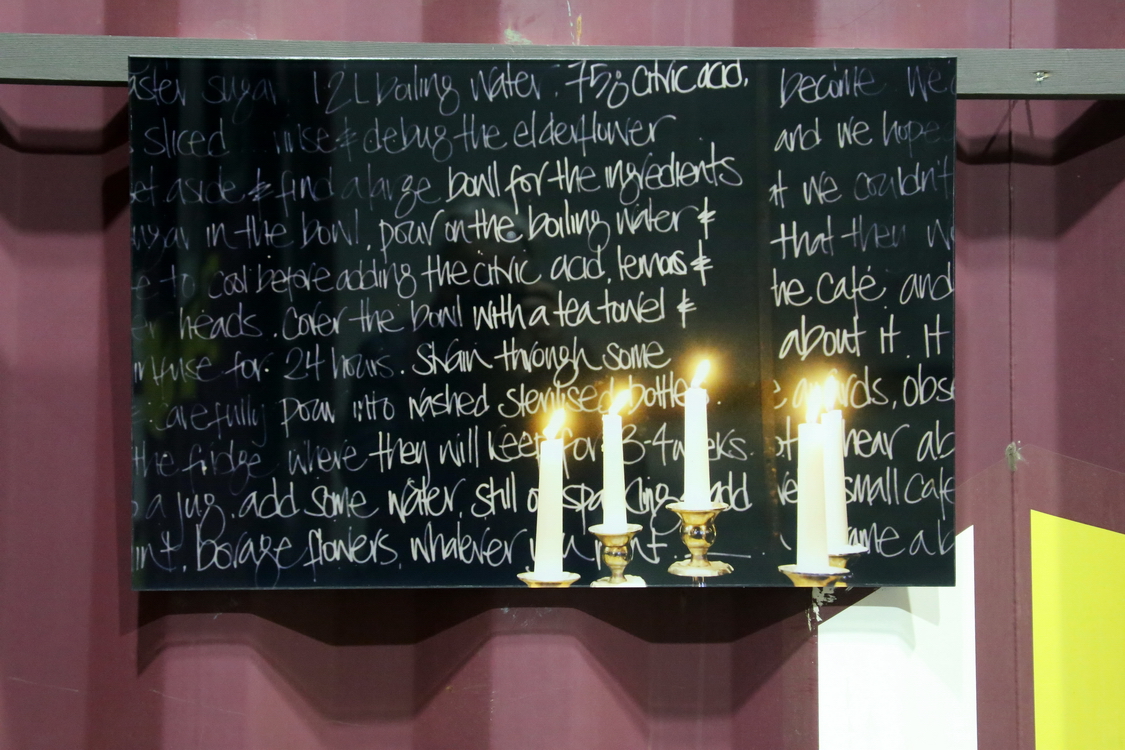 aster sugar 1.2L boiling water. 75g citric acid,
sliced rinse & debug the elderflower
et aside & find a large bowl for the ingredients
in the bowl, pour on the boiling water &
e to cool before adding the citric acid, lemons &
er heads. Cover the bowl with a tea towel &
infuse for 24 hours. Strain through some
carefully pour into washed sterilised bottles.
the fridge where they will keep for 3-4 weeks.
a jug, add some water, still or sparkling, add
int, borage flowers, whatever you want.
become we
and we hope
t we couldn't
that then w
he café. and
about it. It
ards, obse
near ab
small cafe
ame a b